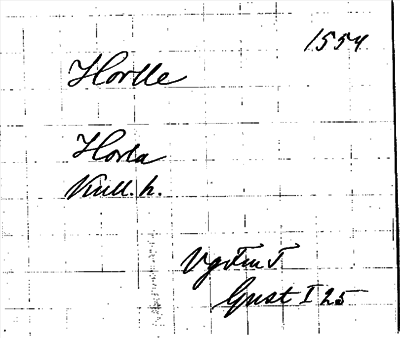 1554
Horlle
Horla
Kull. h.
VgFmT
Gust I 25